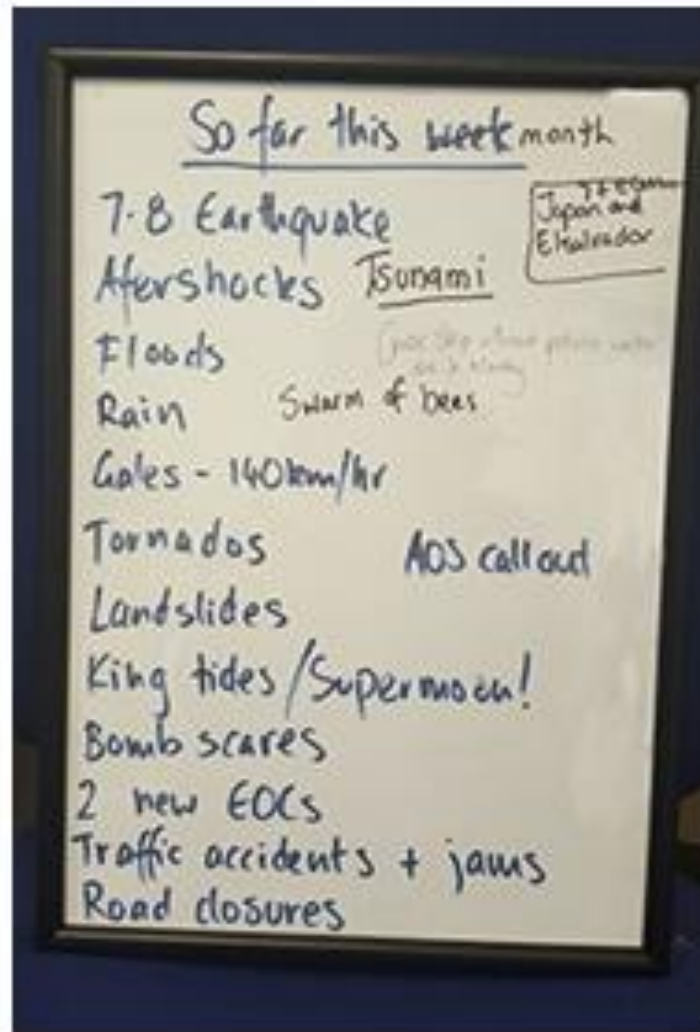 So far this week month
7.8 Earthquake
Japan and
Elsalvador
Aftershocks Tsunami
Floods
Rain Swarm of bees
Gales - 140km/hr
Tornados AOS callout
Landslides
King tides / Supermoon!
Bomb scares
2 new EOCs
Traffic accidents + jams
Road closures